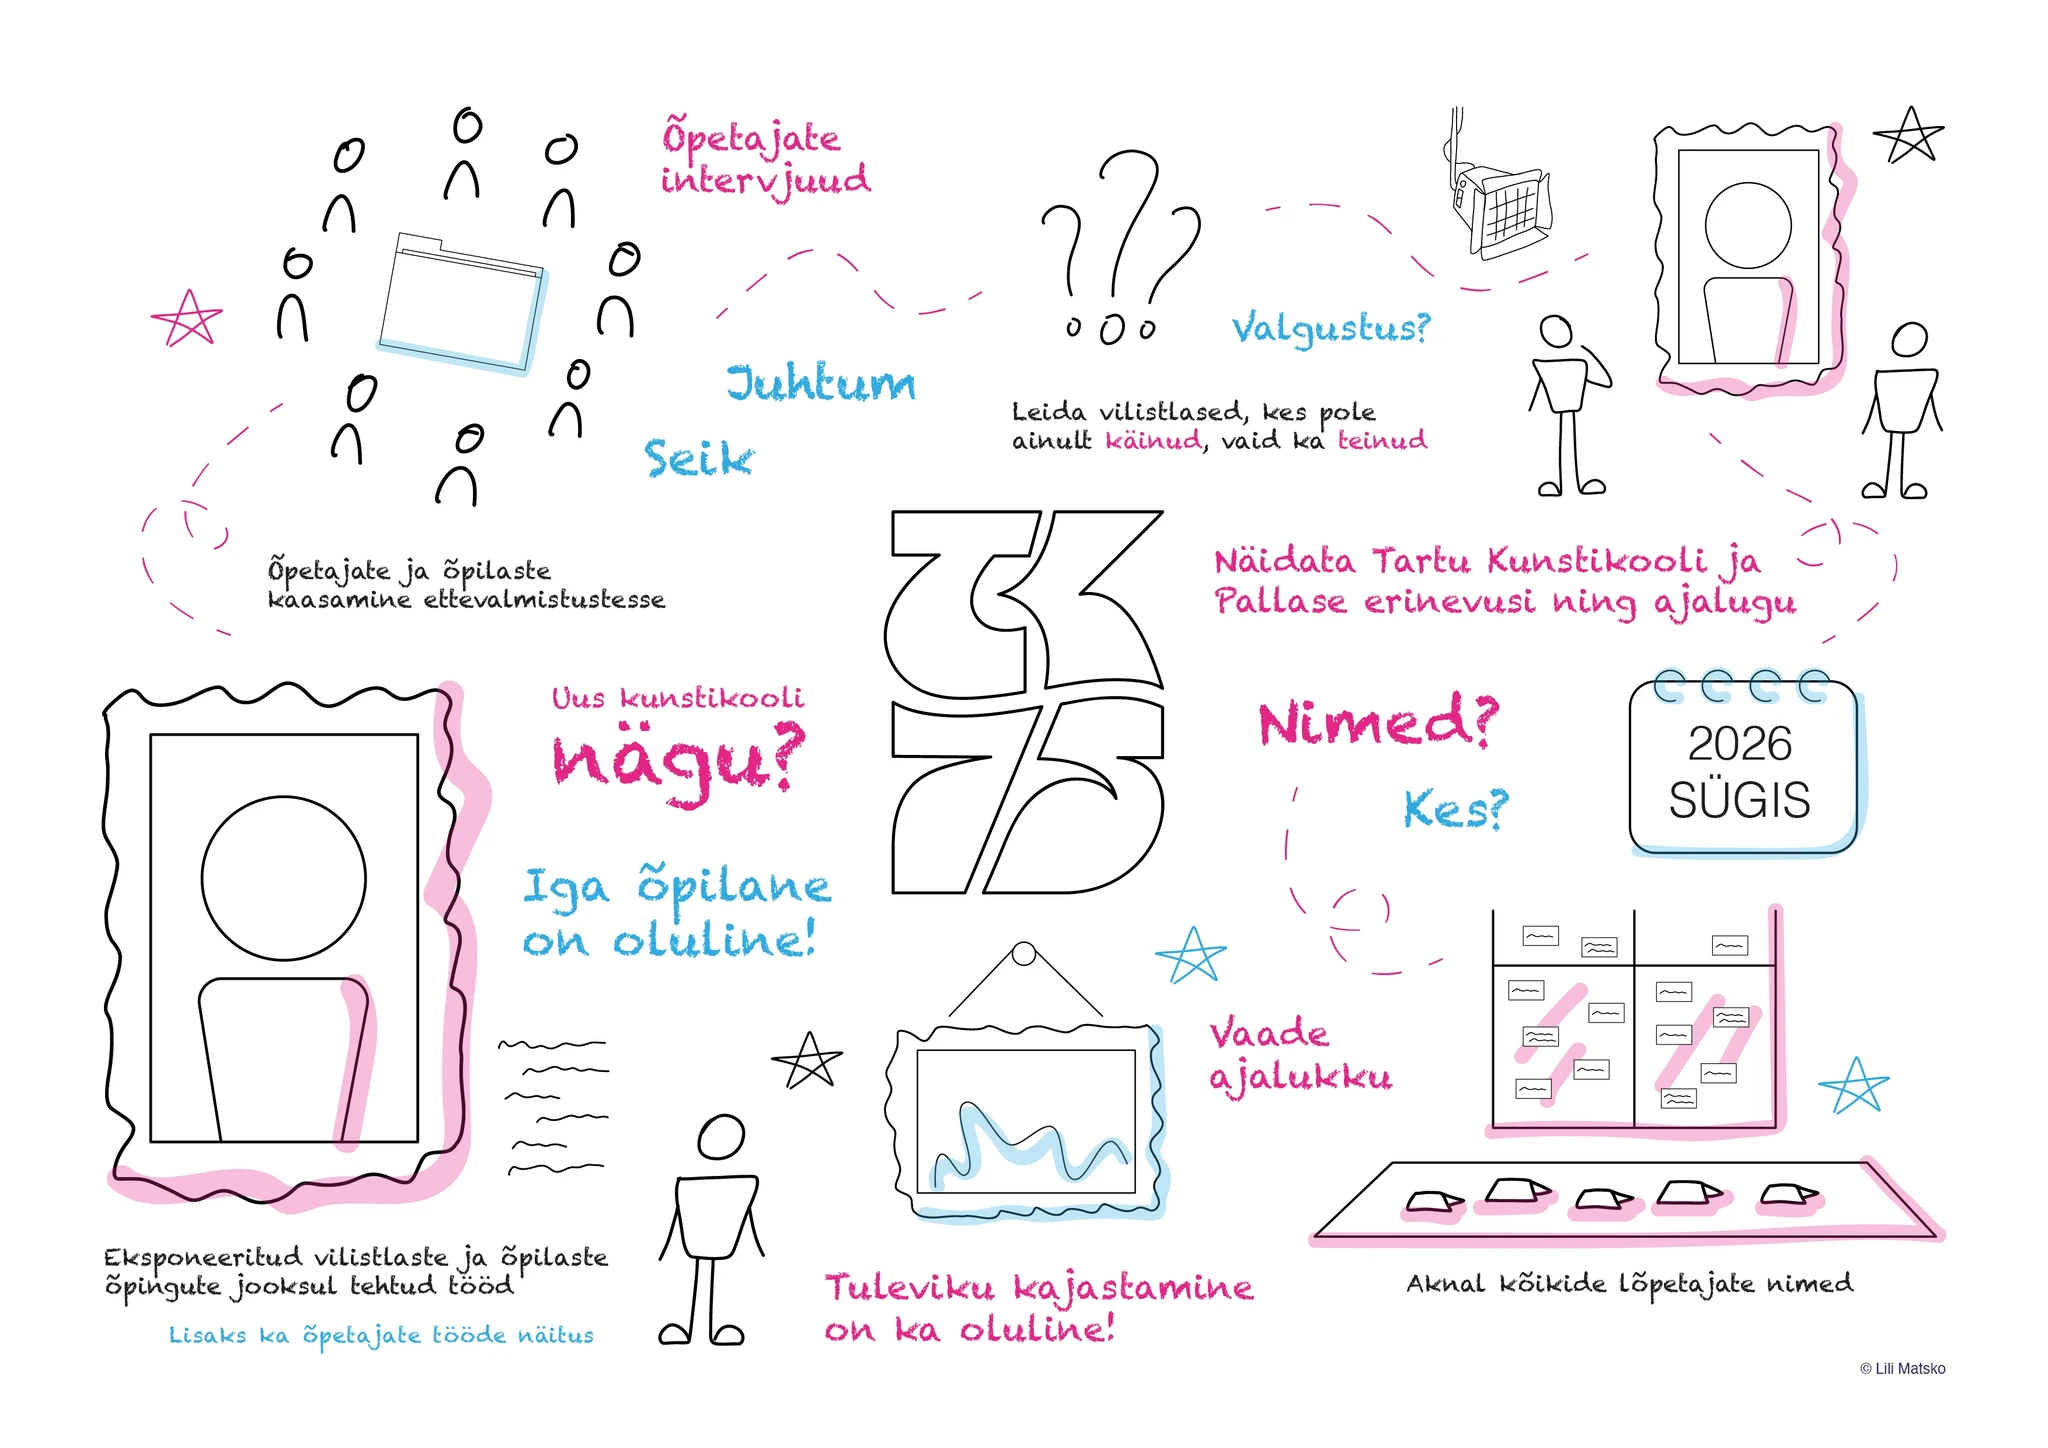 Õpetajate
intervjuud
Juhtum
Seik
Õpetajate ja õpilaste
kaasamine ettevalmistustesse
Valgustus?
Leida vilistlased, kes pole
ainult käinud, vaid ka teinud
Näidata Tartu Kunstikooli ja
Pallase erinevusi ning ajalugu
TK
75
Uus kunstikooli
nägu?
Iga õpilane
on oluline!
Nimed?
Kes?
2026
SÜGIS
Vaade
ajalukku
Eksponeeritud vilistlaste ja õpilaste
õpingute jooksul tehtud tööd
Lisaks ka õpetajate tööde näitus
Tuleviku kajastamine
on ka oluline!
Aknal kõikide lõpetajate nimed
© Lili Matsko